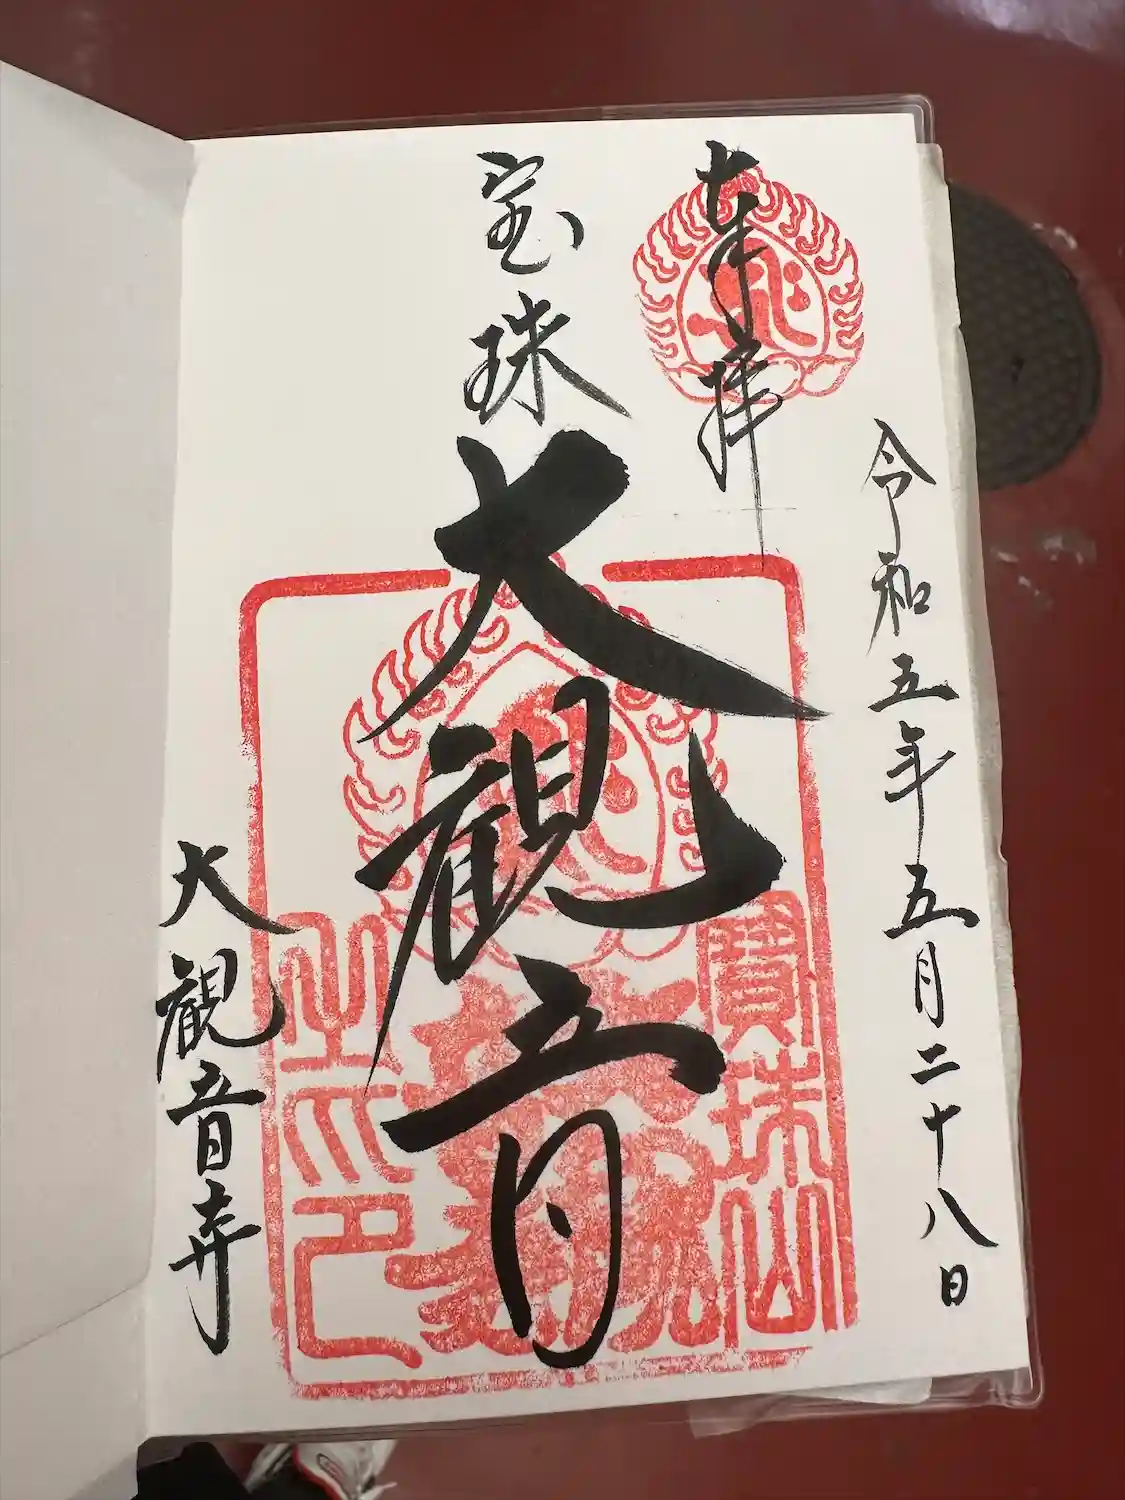 奉拝
令和五年五月二十八日
宝珠
大観音
寳珠山
之印
大観音寺